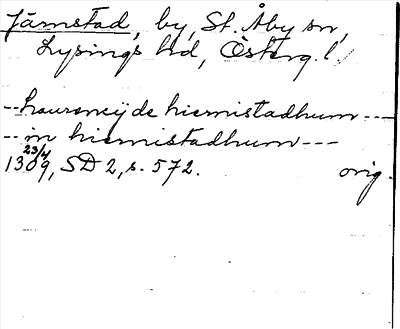 Jämstad, by, St. Åby sn,
Lysings hd, Österg. l.
-- haursney de hiemistadhum ---
-- in hiemistadhum ---
23/4
1309, SD 2, s. 572. orig.